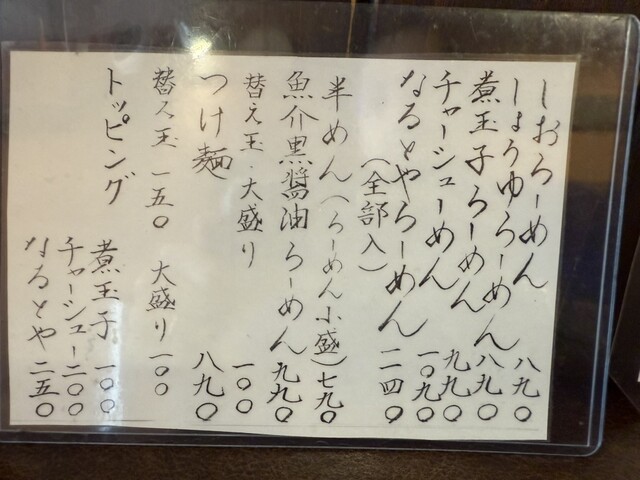 しおらーめん 八九〇
しょうゆらーめん 八九〇
煮玉子らーめん 九九〇
チャーシューめん 一〇九〇
なるとやらーめん 一二四〇
(全部入)
半めん(らーめん小盛) 七九〇
魚介黒醤油らーめん 九九〇
替え玉・大盛り 一〇〇
つけ麺 八九〇
替え玉 一五〇 大盛り 一〇〇
トッピング
煮玉子 一〇〇
チャーシュー 二〇〇
なるとや 二五〇